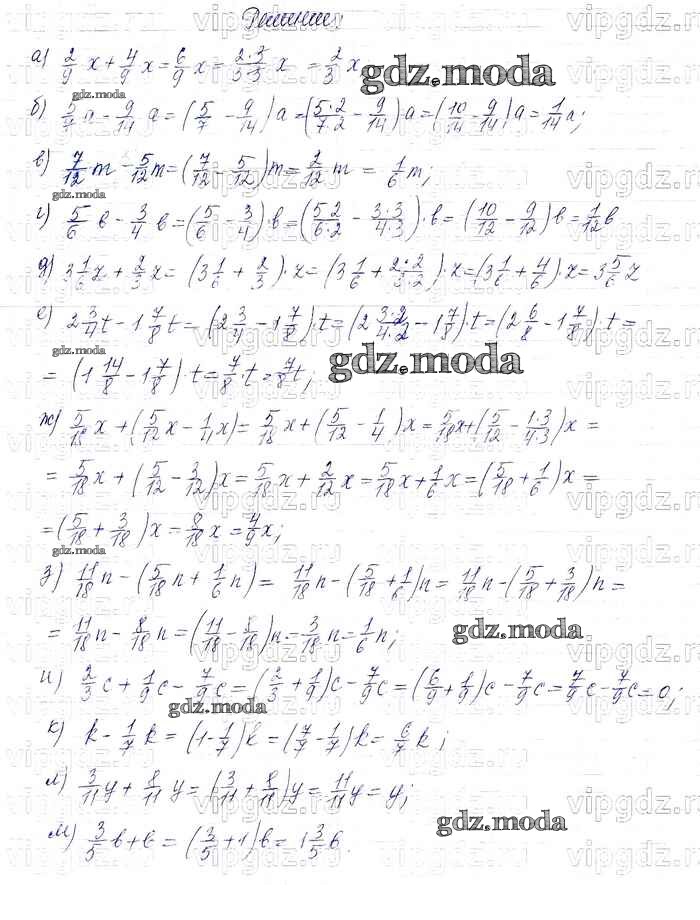 Решение
а) 2/9 x + 4/9 x = 6/9 x = 2·3/3·3 x = 2/3 x
gdz.moda
б) 5/7 a - 9/14 a = (5/7 - 9/14) a = (5·2/7·2 - 9/14)·a = (10/14 - 9/14) a = 1/14 a;
в) 7/12 m - 5/12 m = (7/12 - 5/12) m = 2/12 m = 1/6 m;
г) 5/6 в - 3/4 в = (5/6 - 3/4)·в = (5·2/6·2 - 3·3/4·3)·в = (10/12 - 9/12) в = 1/12 в
д) 3 1/6 z + 2/3 z = (3 1/6 + 2/3)·z = (3 1/6 + 2·2/3·2)·z = (3 1/6 + 4/6) z = 3 5/6 z
е) 2 3/4 t - 1 7/8 t = (2 3/4 - 1 7/8)·t = (2 3·2/4·2 - 1 7/8)·t = (2 6/8 - 1 7/8)·t =
= (1 14/8 - 1 7/8)·t = 7/8 t = 7/8 t;
gdz.moda
ж) 5/18 x + (5/12 x - 1/4 x) = 5/18 x + (5/12 - 1/4) x = 5/18 x + (5/12 - 1·3/4·3) x =
= 5/18 x + (5/12 - 3/12) x = 5/18 x + 2/12 x = 5/18 x + 1/6 x = (5/18 + 1/6) x =
= (5/18 + 3/18) x = 8/18 x = 4/9 x;
з) 11/18 n - (5/18 n + 1/6 n) = 11/18 n - (5/18 + 1/6) n = 11/18 n - (5/18 + 3/18) n =
= 11/18 n - 8/18 n = (11/18 - 8/18) n = 3/18 n = 1/6 n;
gdz.moda
и) 2/3 c + 1/9 c - 7/9 c = (2/3 + 1/9) c - 7/9 c = (6/9 + 1/9) c - 7/9 c = 7/9 c - 7/9 c = 0;
gdz.moda
к) k - 1/7 k = (1 - 1/7) k = (7/7 - 1/7) k = 6/7 k;
л) 3/11 y + 8/11 y = (3/11 + 8/11) y = 11/11 y = y;
м) 3/5 в + в = (3/5 + 1) в = 1 3/5 в
gdz.moda